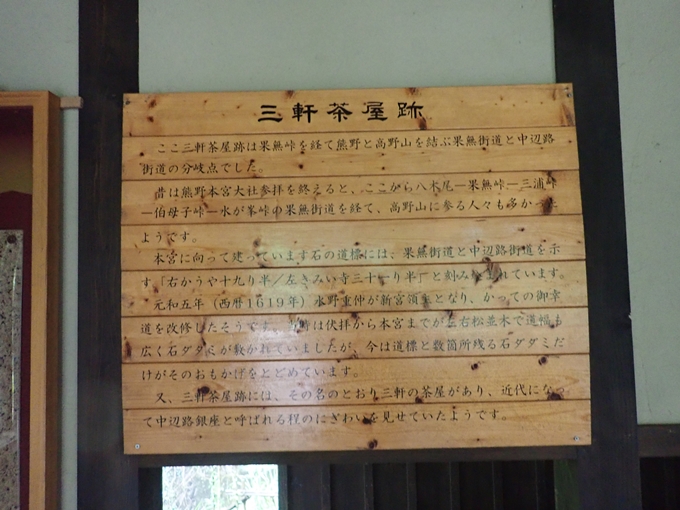 三軒茶屋跡
ここ三軒茶屋跡は果無峠を経て熊野と高野山を結ぶ果無街道と中辺路
街道の分岐点でした。
昔は熊野本宮大社参拝を終えると、ここから八木尾－果無峠－三浦峠
－伯母子峠－水が峯峠の果無街道を経て、高野山に参る人々も多かった
ようです。
本宮に向って建っています石の道標には、果無街道と中辺路街道を示
す「右かうや十九り半／左きみい寺三十一り半」と刻み込まれています。
元和五年（西暦1619年）水野重仲が新宮領主となり、かっての御幸
道を改修したそうです。当時は伏拝から本宮までが左右松並木で道幅も
広く石ダダミが敷かれていましたが、今は道標と数箇所残る石ダダミだ
けがそのおもかげをとどめています。
又、三軒茶屋跡には、その名のとおり三軒の茶屋があり、近代になっ
て中辺路銀座と呼ばれる程のにぎわいを見せていたようです。